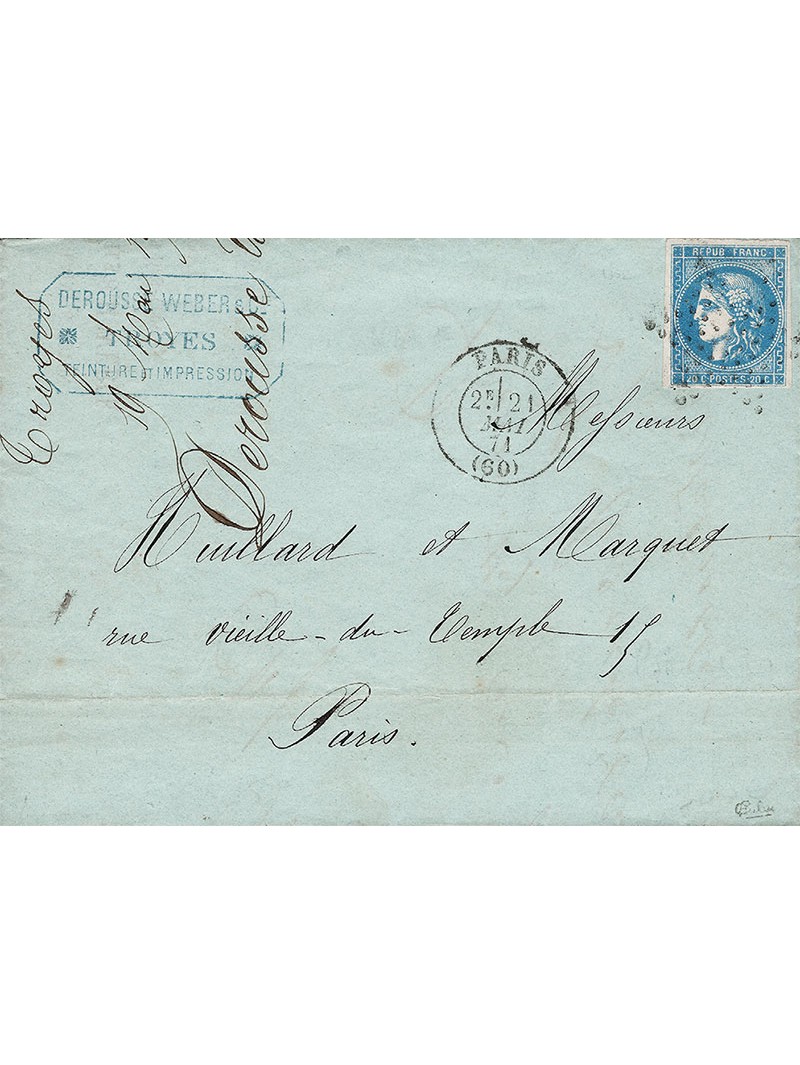 DEROUSSE WEBER & C.
TROYES
TEINTURE ET IMPRESSION
Troyes
19 Mai
Derousse
REPUB FRANC
20 C · POSTES · 20 C
PARIS
2E 21
MAI
71
(60)
Messieurs
Huillard et Marquet
rue vieille-du-Temple 15
Paris.